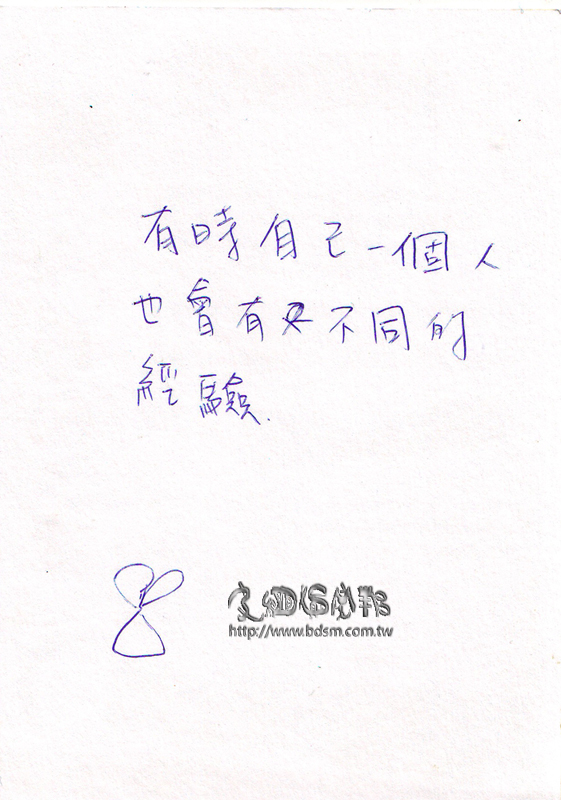 有時自己一個人
也會有不同的
經驗.
http://www.bdsm.com.tw